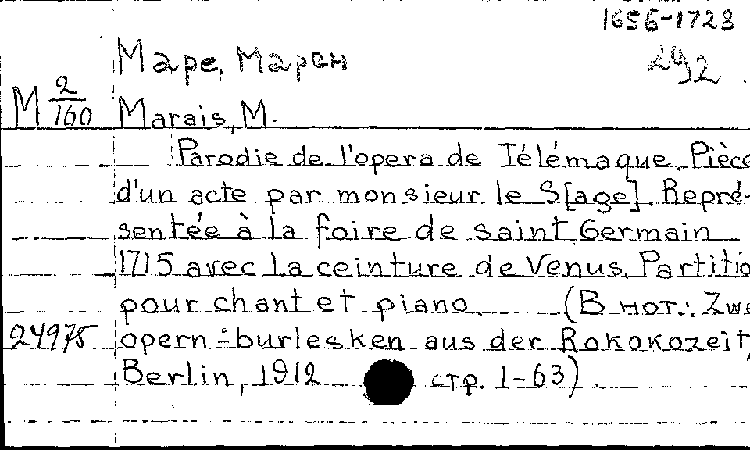 1656-1723
Маре, Марен
292
M 2/160
Marais, M.
Parodie de l'opera de Télémaque. Pièce
d'un acte par monsieur le S[age]. Repré-
sentée à la foire de saint Germain
1715 avec la ceinture de Venus. Partitio
pour chant et piano. (В нот.: Zwe
24975 opern-burlesken aus der Rokokozeit,
Berlin, 1912 стр. 1-63).